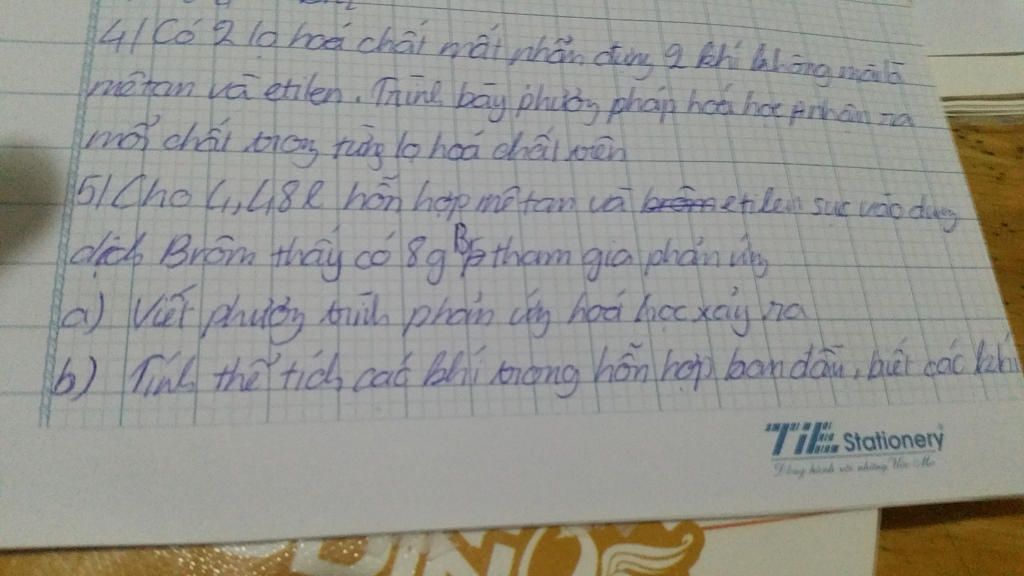 4/ Có 2 lọ hoá chất mất nhãn đựng 2 khí không màu là
mêtan và etilen. Trình bày phương pháp hoá học nhận ra
mỗi chất trong từng lọ hoá chất trên
5/ Cho 4,48l hỗn hợp mêtan và etilen sục vào dung
dịch Brôm thấy có 8g tham gia phản ứng
a) Viết phương trình phản ứng hoá học xảy ra
b) Tính thể tích các khí trong hỗn hợp ban đầu, biết các khí
TiE Stationery
Đồng hành với những Ước Mơ